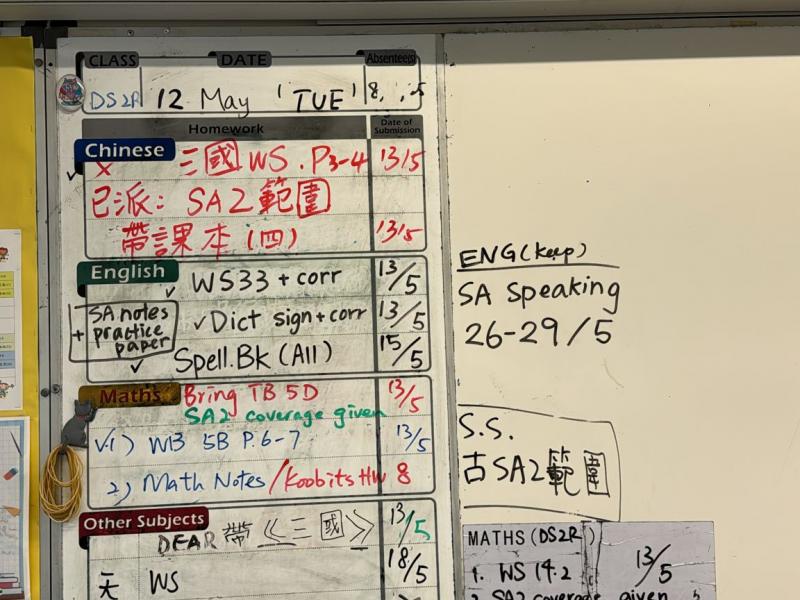 CLASS DATE Absentee(s)
DS2R 12 May 'TUE' 8, , 5
Homework Date of Submission
Chinese
X 三國 WS . P3-4 13/5
已派: SA2 範圍
帶課本(四) 13/5
English
WS33 + corr 13/5
SA notes + practice paper
✓ Dict sign + corr 13/5
Spell. BK (All) 15/5
Maths
Bring TB 5D 13/5
SA2 coverage given
✓1) WB 5B P.6-7 13/5
2) Math Notes / Koobits HW 8
Other Subjects
DEAR 帶 《三國》 13/5
天 WS 18/5
ENG (keep)
SA Speaking
26-29/5
S.S.
古 SA2 範圍
MATHS (DS2R)
1. WS 14.2 13/5
2 SA2 coverage given